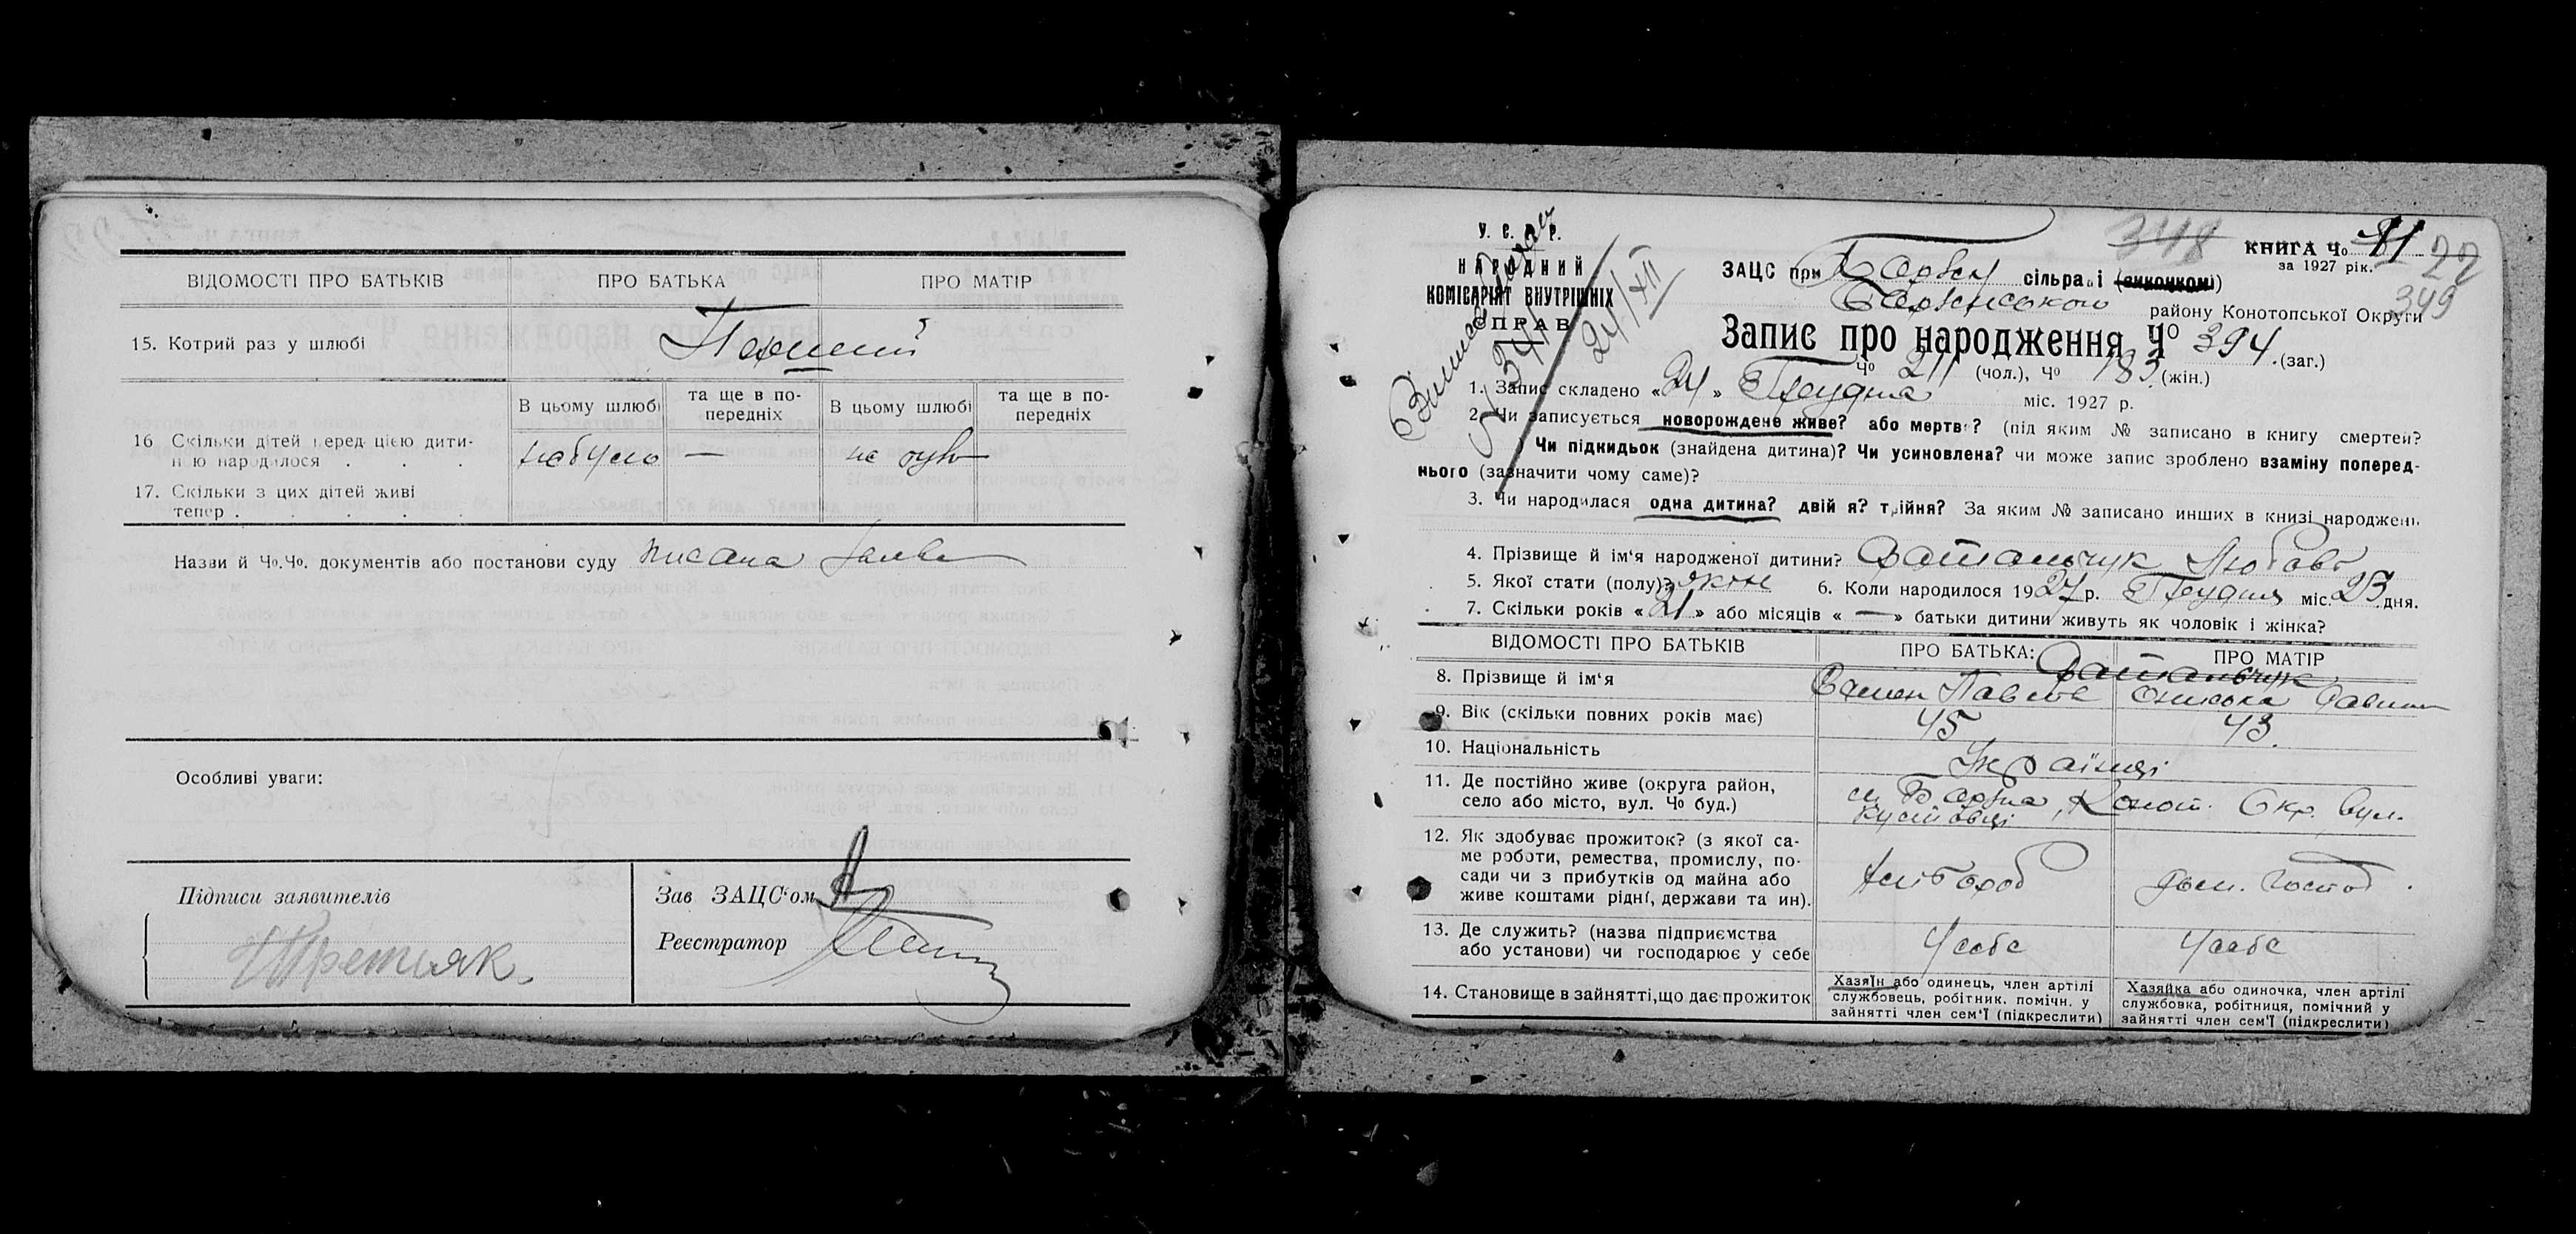 ВІДОМОСТІ ПРО БАТЬКІВ
ПРО БАТЬКА
ПРО МАТІР
15. Котрий раз у шлюбі
Перший
В цьому шлюбі
та ще в по-
передніх
В цьому шлюбі
та ще в по-
передніх
16 Скільки дітей перед цією дити-
ною народилося . . .
не було
—
не було
17. Скільки з цих дітей живі
тепер . . . . .
Назви й Чо.Чо. документів або постанови суду писана заява
Особливі уваги:
Підписи заявителів
Третяк.
Зав ЗАЦС'ом
Реєстратор
У. С. Р. Р.
НАРОДНИЙ
КОМІСАРІЯТ ВНУТРІШНІХ
СПРАВ
24/XII
348
КНИГА Чо 11
22
за 1927 рік.
349
ЗАЦС при Борзен сільраді (виконкомі)
Борзенського району Конотопської Округи
Запис про народження Чо 394. (заг.)
Чо 211 (чол.), Чо 183. (жін.)
1. Запис складено «24» Грудня міс. 1927 р.
2. Чи записується новорождене живе? або мертве? (під яким № записано в книгу смертей?
Чи підкидьок (знайдена дитина)? Чи усиновлена? чи може запис зроблено взаміну поперед-
нього (зазначити чому саме)?
3. Чи народилася одна дитина? двійня? трійня? За яким № записано инших в книзі народжень
4. Прізвище й ім'я народженої дитини? Ватальчук Любов
5. Якої стати (полу)? жіне 6. Коли народилося 1927 р. Грудня міс. 23 дня.
7. Скільки років «21» або місяців «—» батьки дитини живуть як чоловік і жінка?
ВІДОМОСТІ ПРО БАТЬКІВ
ПРО БАТЬКА:
ПРО МАТІР
8. Прізвище й ім'я
Ватальчук
Семен Павлов
Ониська Савит
9. Вік (скільки повних років має)
45
43.
10. Національність
Українці
11. Де постійно живе (округа район,
село або місто, вул. Чо буд.)
м Борзна, Коноп. Окр. вул.
Кустовці
12. Як здобуває прожиток? (з якої са-
ме роботи, ремества, промислу, по-
сади чи з прибутків од майна або
живе коштами рідні, держави та ин).
хлібороб
дом. господ.
13. Де служить? (назва підприємства
або установи) чи господарює у себе
У себе
У себе
14. Становище в зайнятті, що дає прожиток
Хазяїн або одинець, член артілі
службовець, робітник. помічн. у
зайнятті член сем'ї (підкреслити)
Хазяйка або одиночка, член артілі
службовка, робітниця, помічний у
зайнятті член сем'ї (підкреслити)